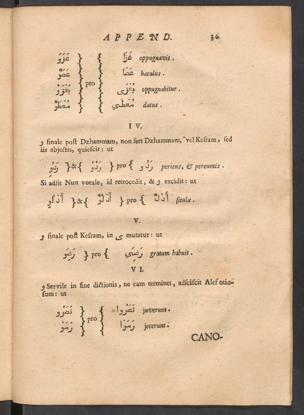 APPEND. 36
غَزَوَ } pro { غَزَا oppugnavit.
عَصَو } pro { عَصَا baculus.
يُغْزَوُ } pro { يُغْزَى oppugnabitur.
} pro { datus.
IV.
و finale post Dzhammam, non fert Dzhammam, vel Kesram, sed
iis abjectis, quiescit: ut
} & { } pro { periens, & pereuntis.
Si adsit Nun vocale, id retrocedit, & و excidit: ut
} & { } pro {
V.
و finale post Kesram, in ى mutatur: ut
رَضِوَ } pro { رَضِيَ gratum habuit.
VI.
و Servile in fine dictionis, ne eam terminet, adsciscit Alef otio-
sum: ut
نَصَرُو } pro { نَصَرُوا juverunt.
رَمَوْ } pro { رَمَوْا jecerunt.
CANO-